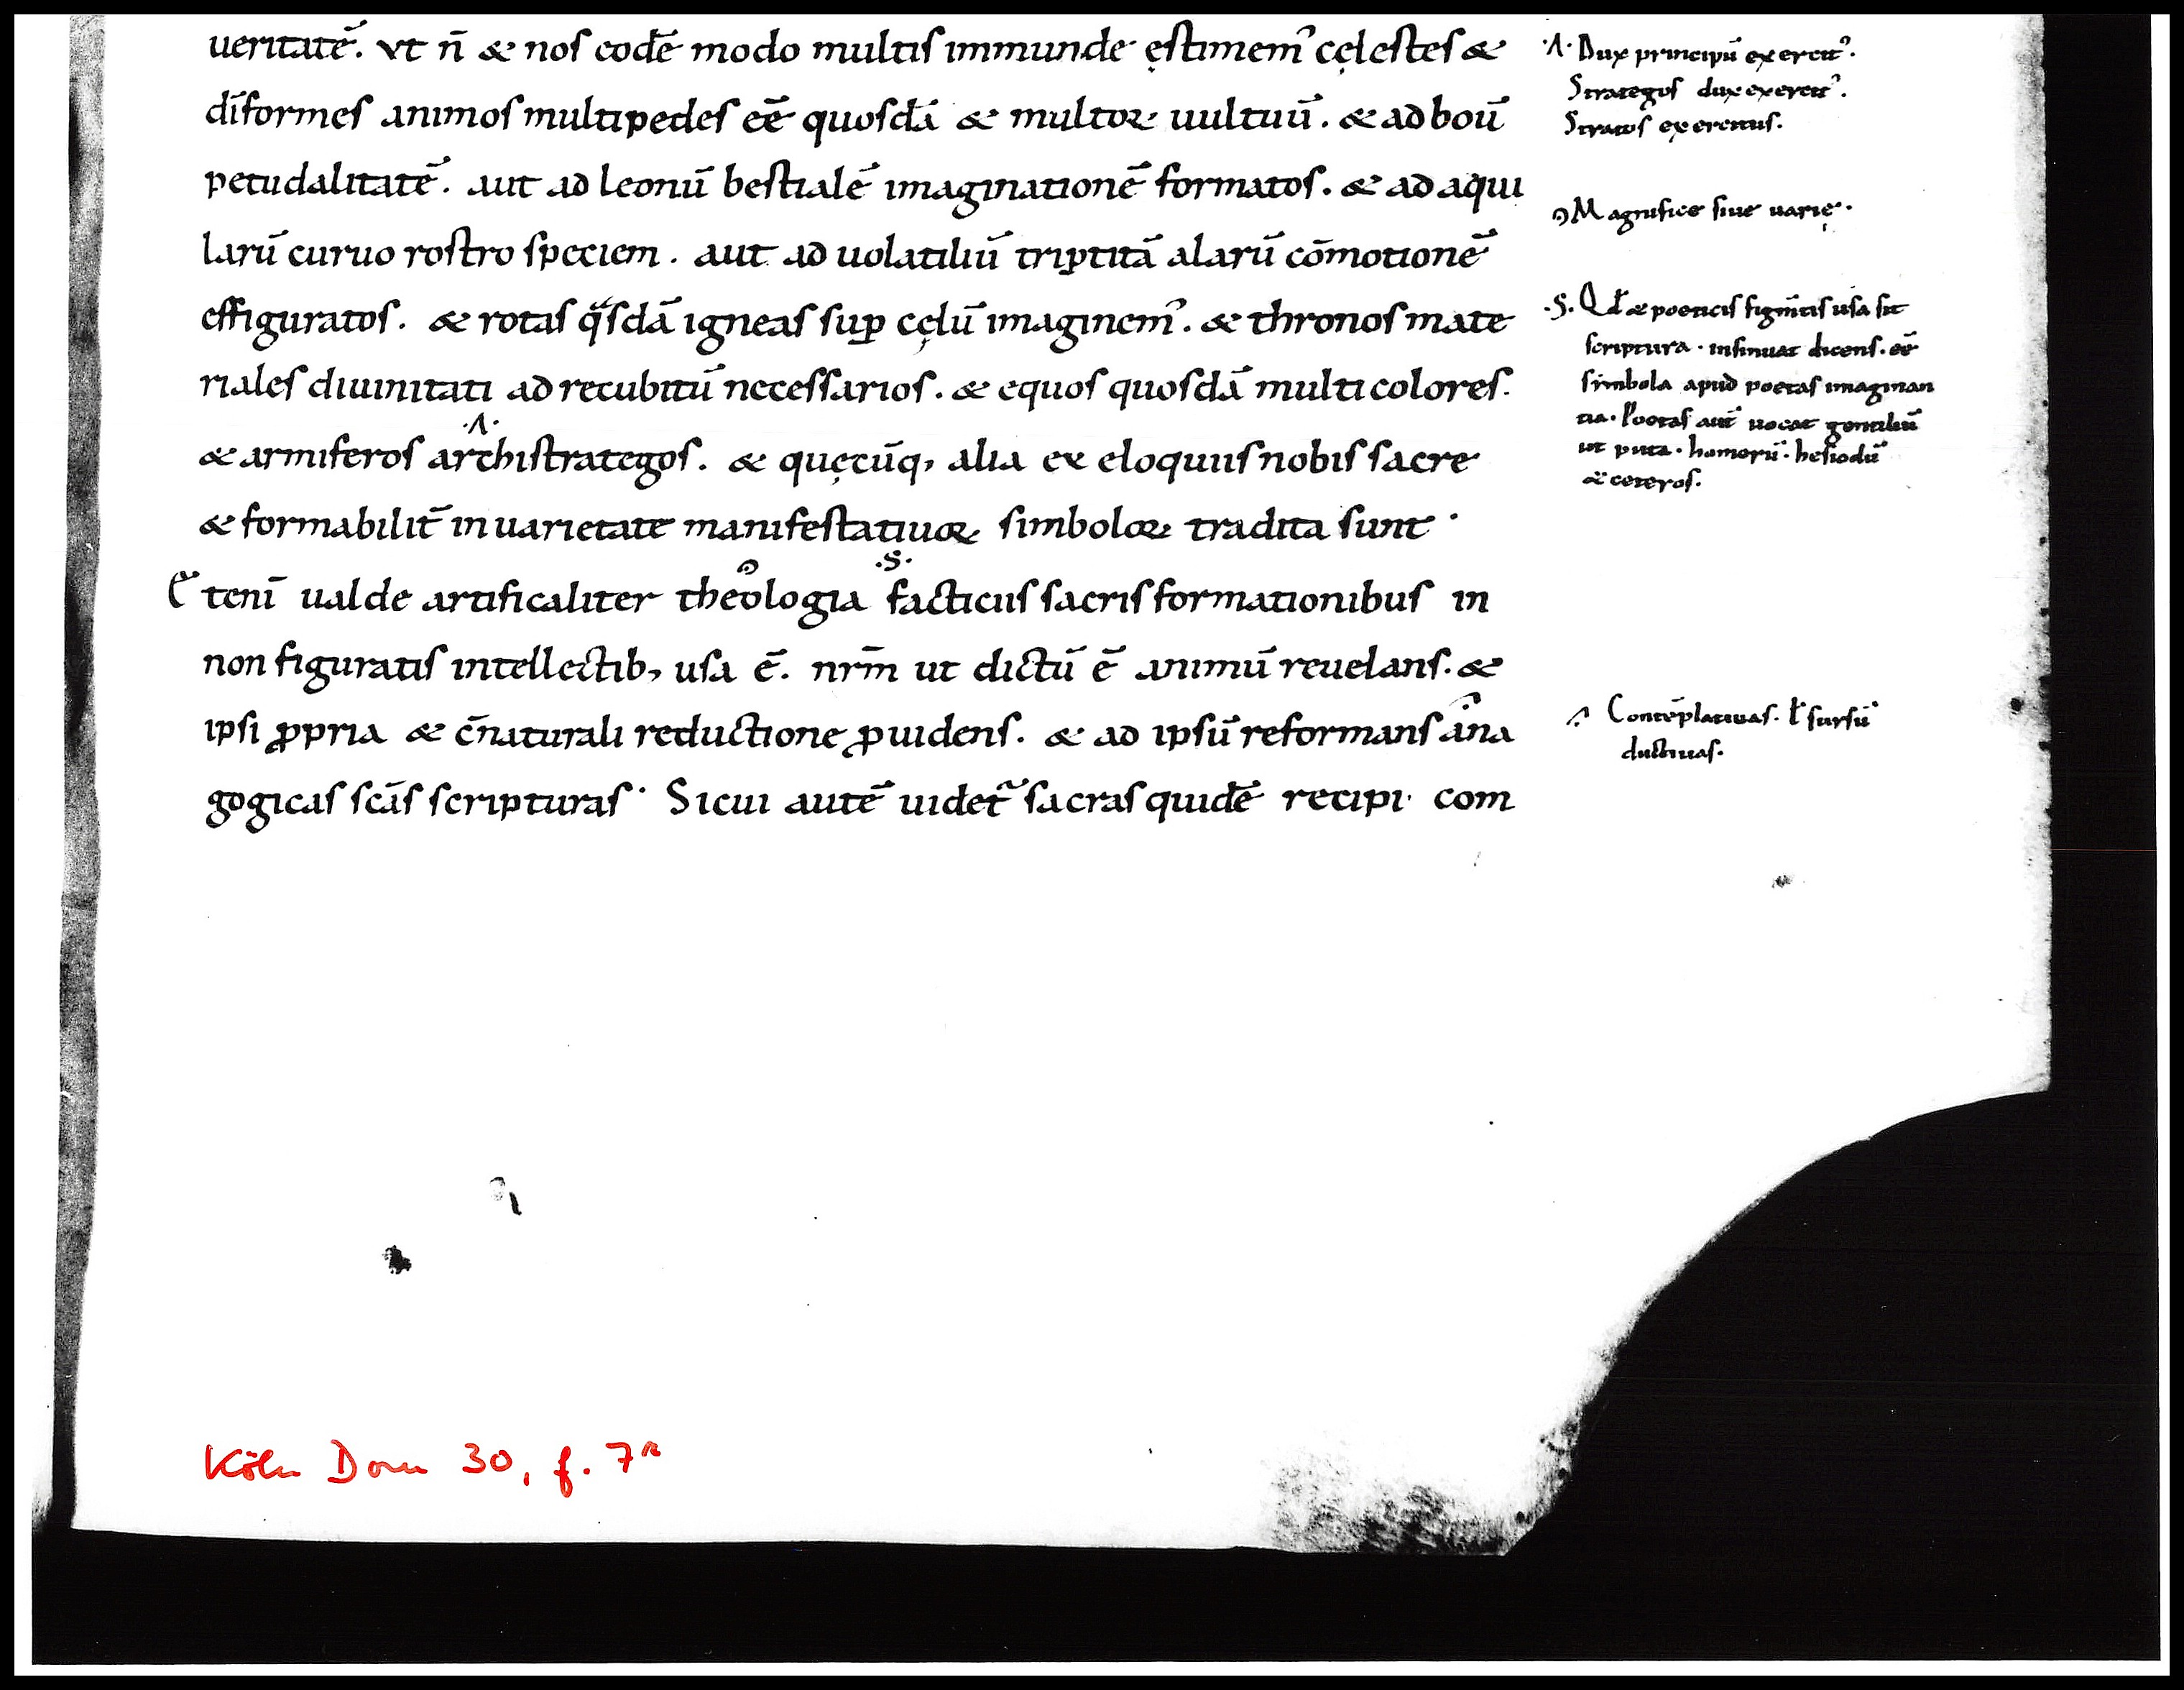 ueritatē. vt n̄ & nos eodē modo multis immunde ęstimem᾿ cęlestes &
diformes animos multipedes eē quosdā & multoꝝ uultuū. & ad boū
petudalitatē. aut ad leonū bestialē imaginationē formatos. & ad aqui
larū curuo rostro speciem. aut ad uolatiliū triꝑtitā alarū cōmotionē
effiguratos. & rotas qͣsdā igneas suꝑ cęlū imaginem᾿. & thronos mate
riales diuinitati ad recubitū necessarios. & equos quosdā multi colores.
·Λ·
& armiferos archistrategos. & quęcūq, alia ex eloquiis nobis sacre
& formabilit̄ in uarietate manifestatiuoꝝ simboloꝝ tradita sunt·
·S·
Etenī ualde artificaliter theologia facticiis sacris formationibus in
non figuratis intellectib, usa ē. nrm̄ ut dictū ē animū reuelans. &
ipsi ꝓpria & c̄naturali reductione ꝓuidens. & ad ipsū reformans ana
gogicas scās scripturas· Sicui autē uidet᷑ sacras quidē recipi· com
·Λ· Dux principū exercit᾿.
Strategos dux exercit᾿.
Stratos exercitus.
Magnifice siue varię.
·S. Qd̄ & poeticis figm̄tis usa sit
scriptura· insinuat dicens. eē
simbola apud poetas imaginan
tia. Poetas aut̄ uocat gentiliū
ut puta· homerū· hesiodū
& ceteros.
Contēplatiuas. ł sursū
ductiuas.
Köln Dom 30, f. 7ʳ